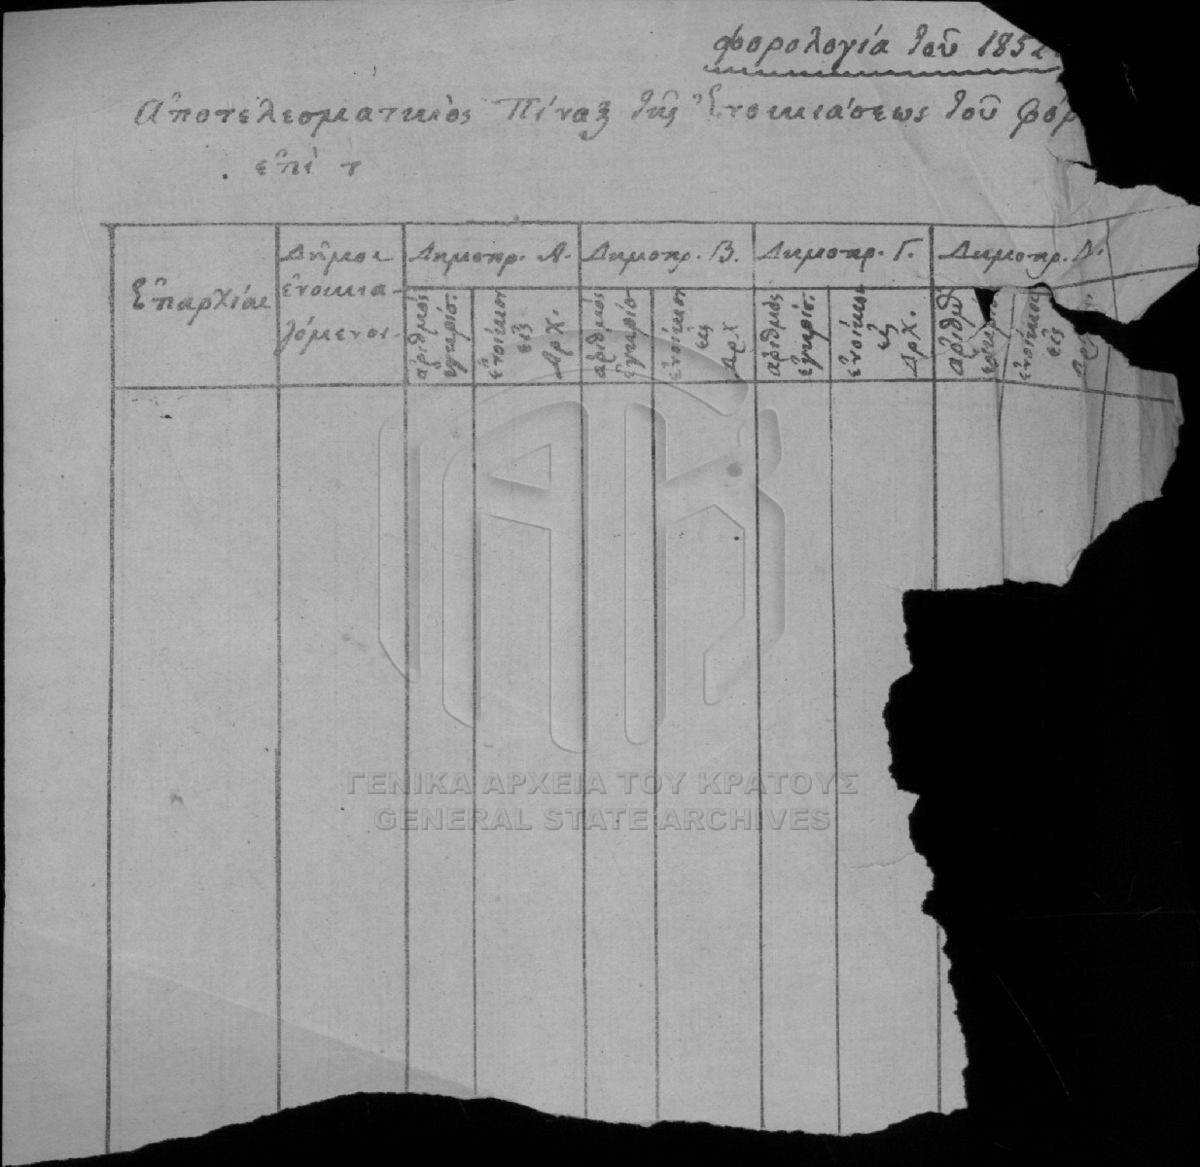 φορολογία τοῦ 185
Ἀποτελεσματικὸς Πίναξ τῆς Ἐνοικιάσεως τοῦ φόρ
ἐπὶ τ
Ἐπαρχίαι
Δῆμοι
ἐνοικια-
ζόμενοι.
Δημοπρ. Α.
Δημοπρ. Β.
Δημοπρ. Γ.
Δημοπρ. Δ.
ἀριθμὸς
ἐγκρίσ.
ἐνοίκιον
εἰς
Δρχ.
ἀριθμὸς
ἐγκρίσ
ἐνοίκιον
εἰς
Δρχ
ἀριθμὸς
ἐγκρίσ.
ἐνοίκιον
εἰς
Δρχ.
ἀριθμ
ἐνοίκιον
εἰς
Δρχ
ΓΕΝΙΚΑ ΑΡΧΕΙΑ ΤΟΥ ΚΡΑΤΟΥΣ
GENERAL STATE ARCHIVES